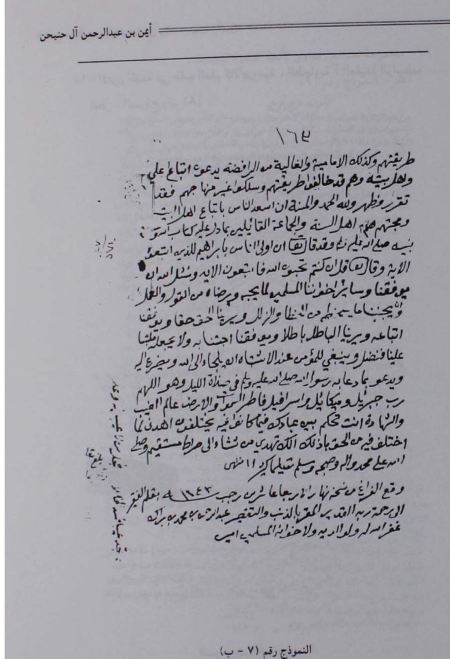 أيمن بن عبدالرحمن آل حنيحن
١٦٣
طريقتهم وكذلك الامامية والغالية من الرافضة يدعون اتباع علي
واهل بيته وهم قد خالفوا طريقتهم وسلكوا غير منهاجهم فقد
تقرر وظهر ولله الحمد والمنة ان اسعد الناس باتباع اهل البيت
ومحبتهم هم اهل السنة والجماعة القائلين بما دل عليه كتاب الله وسنة
نبيه صلى الله عليه وسلم وقد قال تعا ان اولى الناس بابراهيم للذين اتبعوه
الاية وقال تعا قل ان كنتم تحبون الله فاتبعوني الاية ونسأل الله ان
يوفقنا وساير اخواننا المسلمين لما يحبه ويرضاه من القول والعمل
ويجنبنا من الخطا والزلل ويرينا الحق حقا ويوفقنا
اتباعه ويرينا الباطل باطلا ويوفقنا اجتنابه ولا يجعله ملتبسا
علينا فنضل وينبغي للمؤمن عند الاشتباه ان يلجاء الى الله
ويدعو بما دعا به رسول الله صلى الله عليه وسلم في صلاة الليل وهو اللهم
رب جبريل وميكائيل واسرافيل فاطر السموات والارض عالم الغيب
والشهادة انت تحكم بين عبادك فيما كانوا فيه يختلفون اهدني لما
اختلف فيه من الحق باذنك انك تهدي من تشاء الى صراط مستقيم وصلى
الله على محمد واله وصحبه وسلم تسليما كثيرا انتهى
وقع الفراغ من نسخه نهار الاربعا عاشر من رجب ١٢٤٣ بقلم الفقير
الى رحمة ربه القدير المقر بالذنب والتقصير عبدالرحمن بن محمد بن
غفر الله له ولوالديه ولاخوانه المسلمين امين
النموذج رقم (٧ - ب)